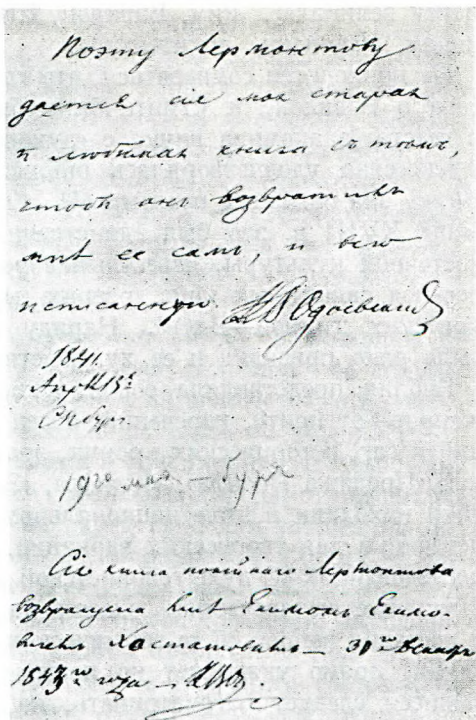 Поэту Лермонтову
дается сіе моя старая
и любимая книга съ тѣмъ,
чтобъ онъ возвратилъ
мнѣ ее самъ, и всю
исписанную. К В Одоевский
1841.
Апреля 13е
СПбург.
19го мая — буря
Сіе книга покойнаго Лермонтова
возвращена мнѣ Екимомъ Екимо-
вичемъ Хастатовымъ — 30го Декабря
1843го года — К В О.